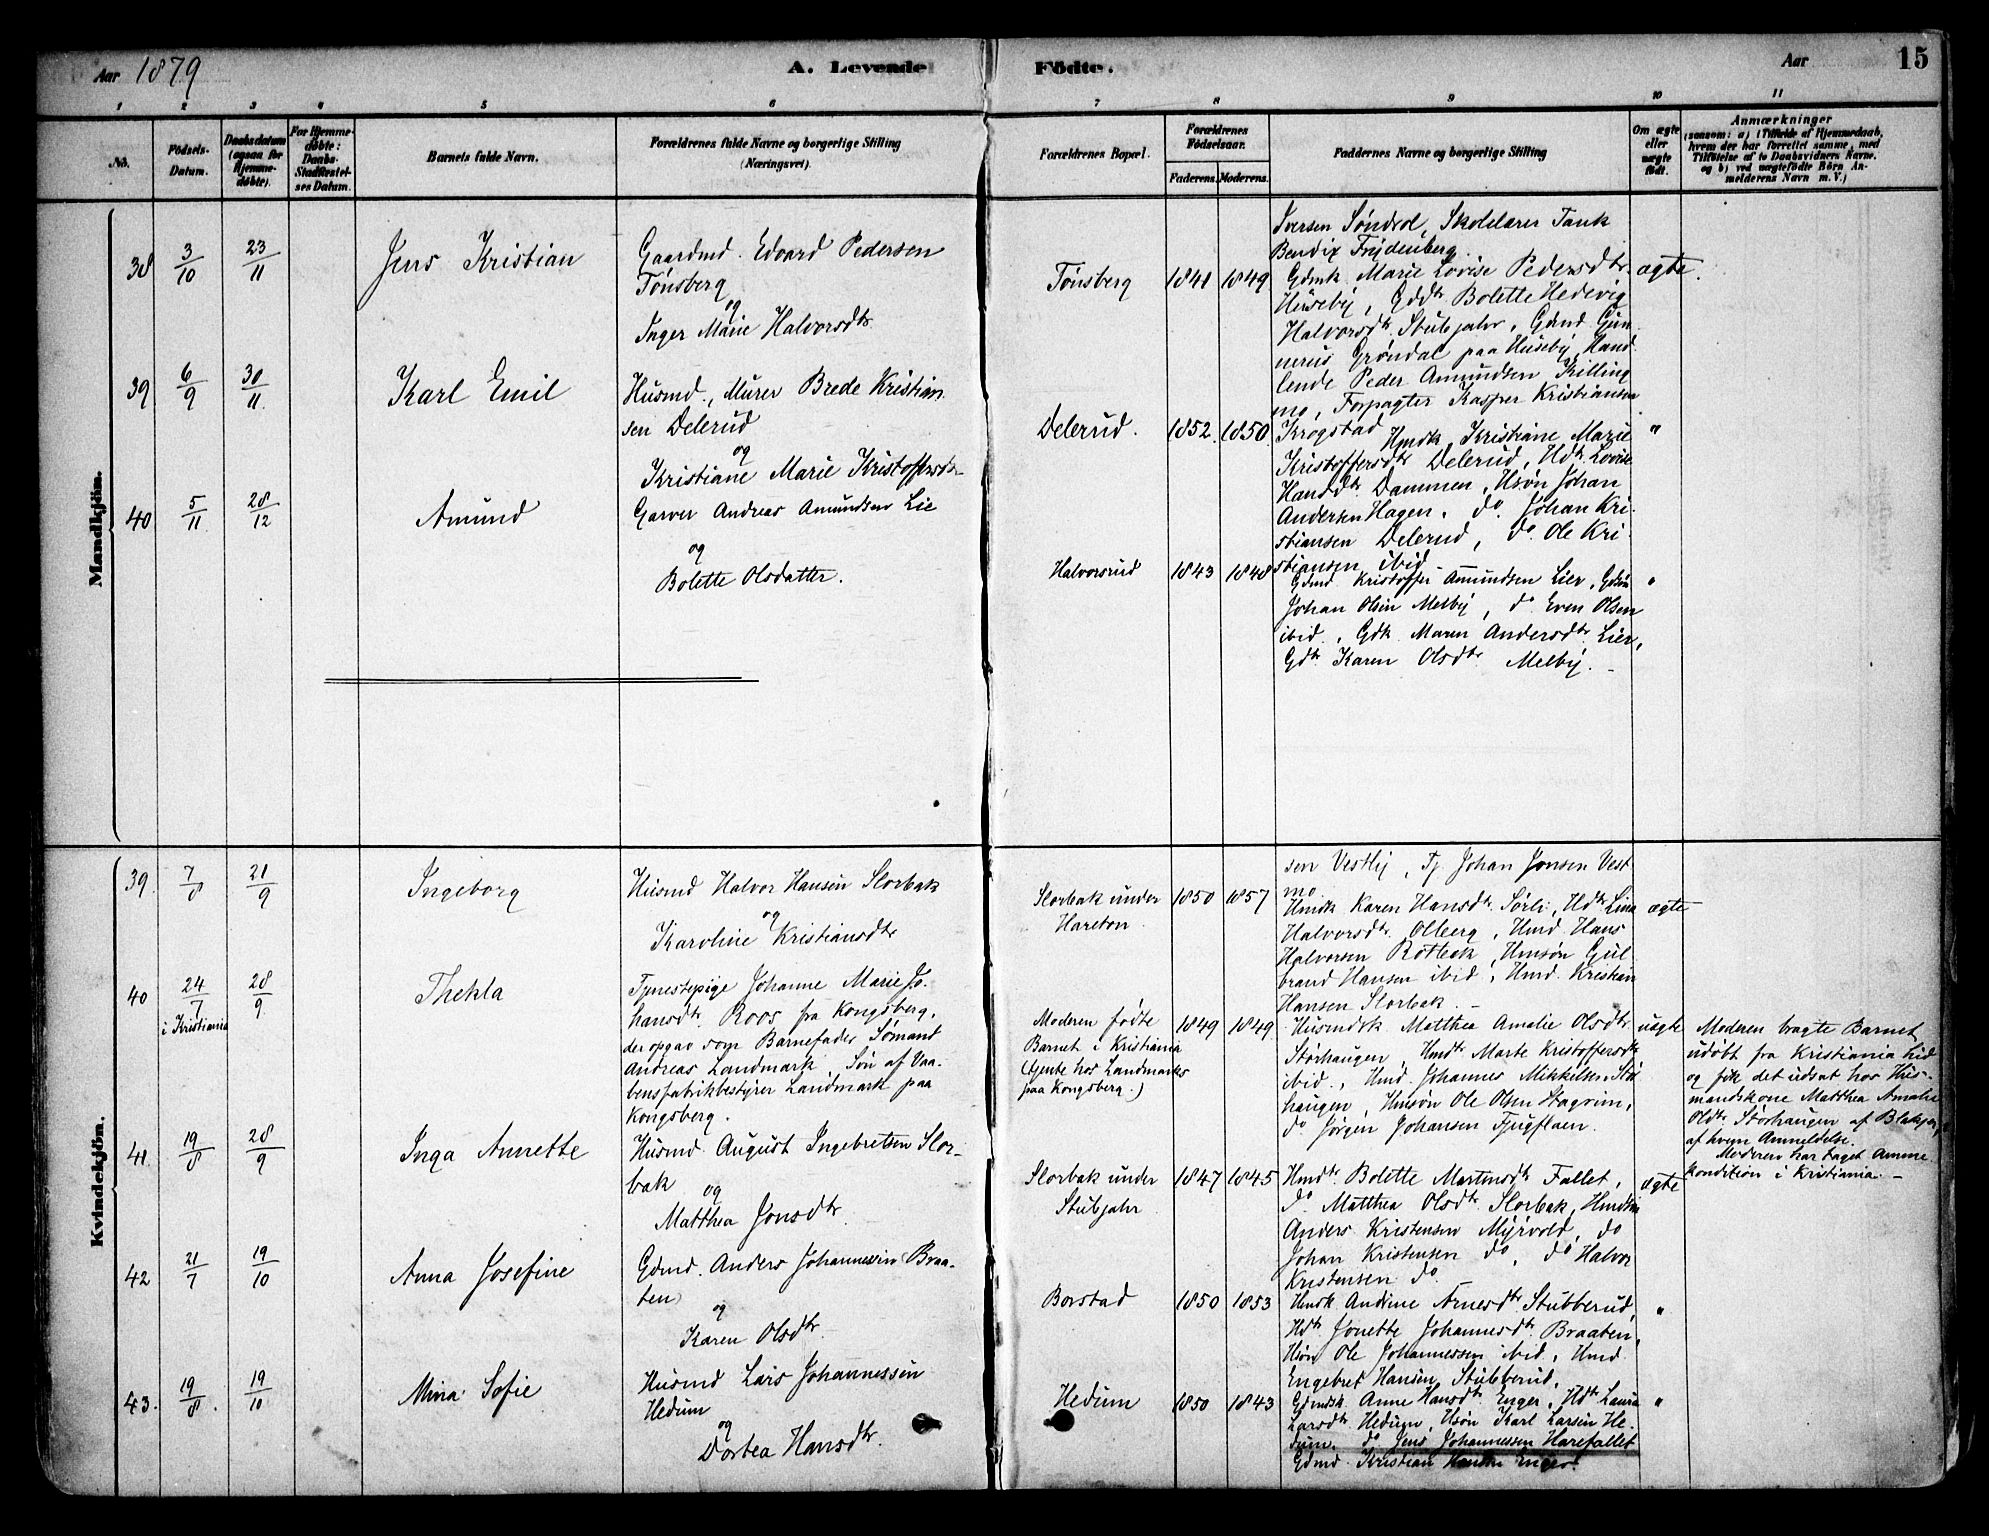 Aar 1879
A. Levende Födte.
Aar
15
1 2 3 4 5 6 7 8 9 10 11
No.
Födsels-
Datum.
Daabsdatum
(ogsaa for
Hjemme-
døbte).
For Hjemme-
døbte:
Daabs-
Stadfæstel-
ses Datum.
Barnets fulde Navn.
Forældrenes fulde Navne og borgerlige Stilling
(Næringsvei).
Forældrenes Bopæl.
Forældrenes
Fødselsaar.
Faderens. Moderens.
Faddernes Navne og borgerlige Stilling
Om ægte
eller
uægte
født.
Anmærkninger
(saasom: a) i Tilfælde af Hjemmedaab,
hvem der har forrettet samme, med
Tilføielse af to Daabsvidners Navne,
og b) ved uægtefødte Börn An-
melderens Navn m. V.)
Mandkjön.
38 3/10 23/11 Jens Kristian
Gaardmd. Edvard Pedersen
Tønsberg
og
Inger Marie Halvorsdtr
Tønsberg 1841 1849
Iversen Søndvol, Skolelærer Tank
Bendix Frydenberg.
Gdmk. Marie Lovise Pedersdtr
Huseby, Gddtr Bolette Hedevig
Halvorsdtr. Stubjahr, Gdmd Gun-
nerus Grøndal paa Huseby, Hand-
lende Peder Amundsen Killing
mo, Forpagter Kasper Kristiansen
Krogstad
ægte.
39 6/9 30/11 Karl Emil
Husmd., Murer Brede Kristian
sen Delerud
og
Kristiane Marie Kristoffersdtr
Delerud. 1852. 1850
Hmdk. Kristiane Marie
Kristoffersdtr Delerud, Hdtr. Lovise
Hansdtr. Dammen, Hsøn Johan
Andersen Hagen, do. Johan Kri-
stiansen Delerud, do. Ole Kri-
stiansen ibid.
"
40 5/11 28/12 Amund
Garver Andreas Amundsen Lie
og
Bolette Olsdatter.
Halvorsrud 1843 1848
Gdmd Kristoffer Amundsen Lier, Gdsøn
Johan Olsen Melby, do. Even Olsen
ibid., Gdk. Maren Andersdtr. Lier,
Gdtr Karen Olsdtr. Melby. –
"
Kvindekjön.
39. 7/8 21/9 Ingeborg
Husmd Halvor Hansen Slorbak
og
Karoline Kristiansdtr
Slorbak under
Hareton
1850 1857
sen Vestby, Tj. Johan Jonsen Vest
mo
Hmdk Karen Hansdtr. Sørli, Hdtr Lina
Halvorsdtr. Olberg, Hmd. Hans
Halvorsen Rotbak, Hmsøn Gul
brand Hansen ibid, Hmd. Kristian
Hansen Slorbak. –
ægte
40 24/7 28/9 Thekla
i Kristiania
Tjenestepige Johanne Marie Jo-
hansdtr. Roos fra Kongsberg,
der opgav som Barnefader Sømand
Andreas Landmark, Søn af Vaa-
bensfabrikbestyrer Landmark paa
Kongsberg.
Moderen fødte
Barnet i Kristiania
(Gente hos Landmarks
paa Kongsberg.)
1849 1849
Husmdsk. Matthea Amalie Olsdtr
Størhaugen, Hmdtr Marte Kristoffersdtr
ibid., Hmd. Johannes Mikkelsen Stør
haugen, Hmsøn Ole Olsen Hagrim,
do Jørgen Johansen Tjugflaen.
uægte
Moderen bragte Barnet
udøbt fra Kristiania hid
og fik det udsat hos Hus-
mandskone Matthea Amalie
Olsdtr. Størhaugen af Blakjer,
af hvem Anmeldelse.
Moderen har taget Amme-
kondition i Kristiania. –
41 19/8 28/9 Inga Annette
Husmd August Ingebretsen Slor-
bak
og
Matthea Jonsdtr.
Slorbak under
Stubjahr.
1847 1845
Hmdtr. Bolette Martinsdtr Fallet,
do. Matthea Olsdtr. Slorbak,
Anders Kristensen Myrvold, do
Johan Kristensen do, do Halvor
Kristensen do.
ægte
42 21/7 19/10 Anna Josefine
Gdmd. Anders Johannessen Braa-
ten
og
Karen Olsdtr.
Borstad 1850 1853
Hmdk. Andrine Arnesdtr. Stubberud,
Hdtr. Jonette Johannesdtr. Braaten,
Hsøn Ole Johannessen ibid, Hmd.
Engebret Hansen Stubberud.
"
43. 19/8. 19/10 Mina Sofie
Husmd Lars Johannessen
Hedum
og
Dortea Hansdtr.
Hedum 1850 1843
Gdmdsk. Anne Hansdtr. Enger, Hdtr Laura
Larsdtr. Hedum, Hsøn Karl Larsen He-
dum. do Jens Johannessen Harefallet
Gdmd. Kristian Hansen Enger.
"